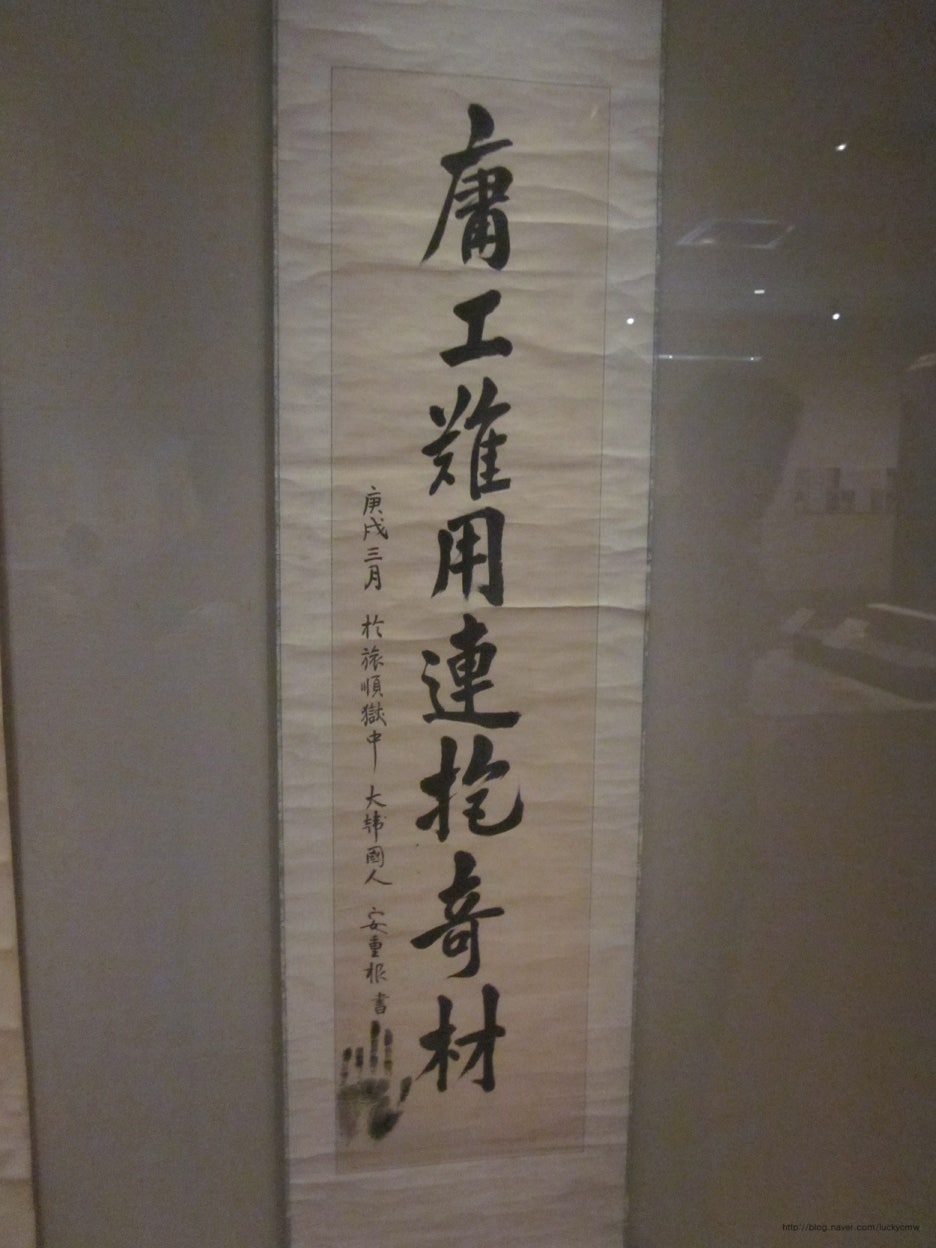 庸工難用連抱奇材
庚戌三月 於旅順獄中 大韓國人 安重根 書
http://blog.naver.com/luckyomw